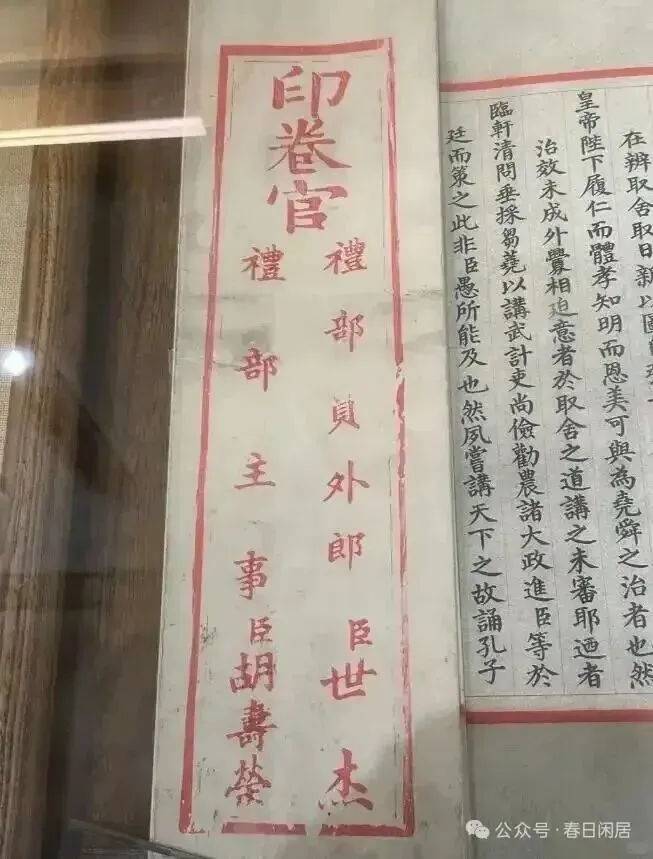 在辨取舍取日新以圖
皇帝陛下履仁而體孝知明而恩美可與為堯舜之治者也然
治效未成外釁相迫意者於取舍之道講之未審耶迺者
臨軒清問垂採芻蕘以講武計吏尚儉勸農諸大政進臣等於
廷而策之此非臣愚所能及也然夙嘗講天下之故誦孔子
印卷官
禮部員外郎臣世杰
禮部主事臣胡壽榮
公众号·春日闲居